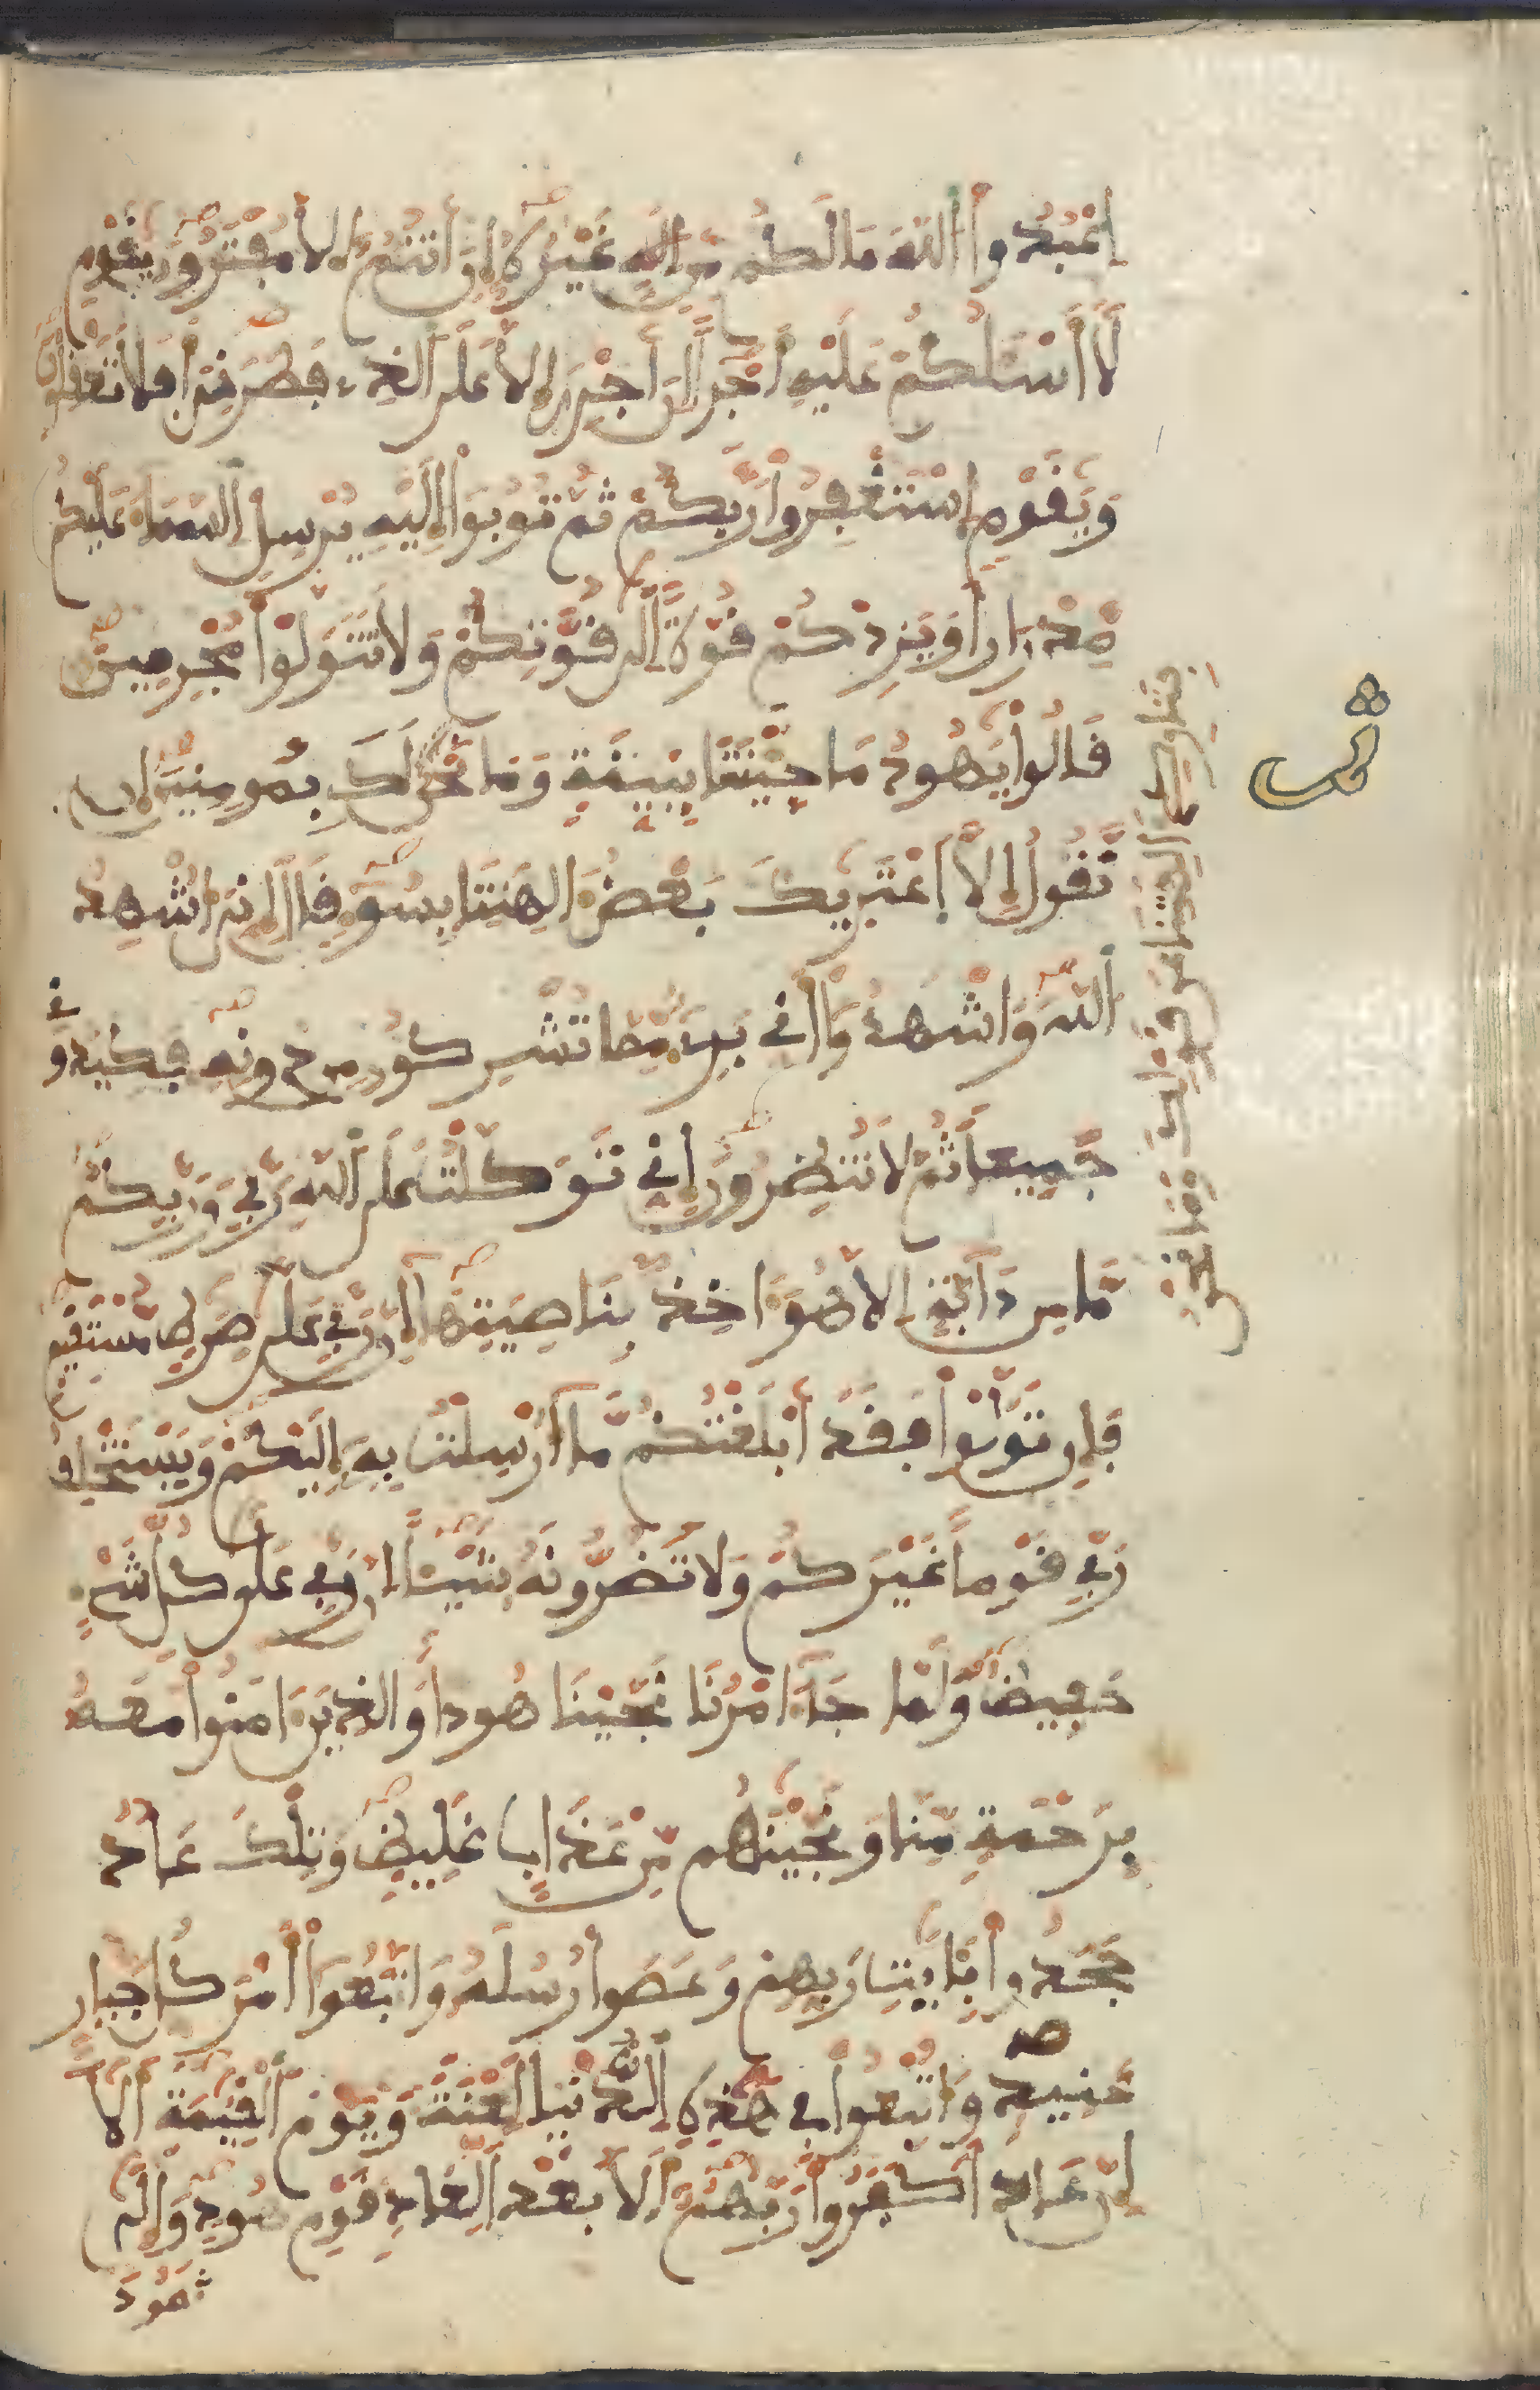 اِعْبُدُواْ اُللَّهَ مَا لَكُم مِّنِ اِلَٰهٍ غَيْرُهُۥ إِنَ اَنتُمُۥ إِلَّا مُفْتَرُونَ يَٰقَوْمِ
لَا أَسْـَٔلُكُمْ عَلَيْهِ أَجْراً إِنَ اَجْرِيَ إِلَّا عَلَى اَلذِے فَطَرَنِيَ أَفَلَا تَعْقِلُونَ
وَيَٰقَوْمِ اِسْتَغْفِرُواْ رَبَّكُمْ ثُمَّ تُوبُواْ إِلَيْهِ يُرْسِلِ اِلسَّمَاءَ عَلَيْكُم
مِّدْرَاراً وَيَزِدْكُمْ قُوَّةً اِلَىٰ قُوَّتِكُمْ وَلَا تَتَوَلَّوْاْ مُجْرِمِينَ
قَالُواْ يَٰهُودُ مَا جِئْتَنَا بِبَيِّنَةٍ وَمَا نَحْنُ
لَكَ بِمُومِنِينَ إِن
نَّقُولُ إِلَّا اَعْتَرَيٰكَ بَعْضُ ءَالِهَتِنَا بِسُوءٍ قَالَ إِنِّيَ أُشْهِدُ
اُللَّهَ وَاشْهَدُواْ أَنِّے بَرِےءٌ مِّمَّا تُشْرِكُونَ مِن دُونِهِۦ فَكِيدُونِے
جَمِيعاً ثُمَّ لَا تُنظِرُونِ إِنِّے تَوَكَّلْتُ عَلَى اَللَّهِ رَبِّے وَرَبِّكُم
مَّا مِن دَآبَّةٍ اِلَّا هُوَ ءَاخِذٌ بِنَاصِيَتِهَا إِنَّ رَبِّے عَلَىٰ صِرَٰطٍ مُّسْتَقِيمٍ
فَإِن تَوَلَّوْاْ فَقَدَ اَبْلَغْتُكُم مَّا أُرْسِلْتُ بِهِۦ إِلَيْكُمْ وَيَسْتَخْلِفُ
رَبِّے قَوْماً غَيْرَكُمْ وَلَا تَضُرُّونَهُۥ شَيْـٔاً اِنَّ رَبِّے عَلَىٰ كُلِّ شَےْءٍ
حَفِيظٌ وَلَمَّا جَآءَ امْرُنَا نَجَّيْنَا هُوداً وَالذِينَ ءَامَنُواْ مَعَهُۥ
بِرَحْمَةٍ مِّنَّا وَنَجَّيْنَٰهُم مِّنْ عَذَابٍ غَلِيظٍ وَتِلْكَ عَادٌ
جَحَدُواْ بِـَٔايَٰتِ رَبِّهِمْ وَعَصَوْاْ رُسُلَهُۥ وَاتَّبَعُواْ أَمْرَ كُلِّ جَبّارٍ
عَنِيدٍ وَأُتْبِعُواْ فِے هَٰذِهِ اِلدُّنْيَا لَعْنَةً وَيَوْمَ اَلْقِيَٰمَةِ أَلَا
إِنَّ عَاداً كَفَرُواْ رَبَّهُمُۥ أَلَا بُعْداً لِّعَادٍ قَوْمِ هُودٍ وَإِلَىٰ
ثَمُودَ